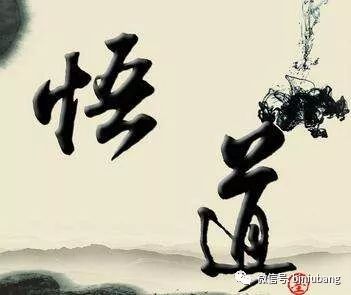 悟
道
微信号: binjubang